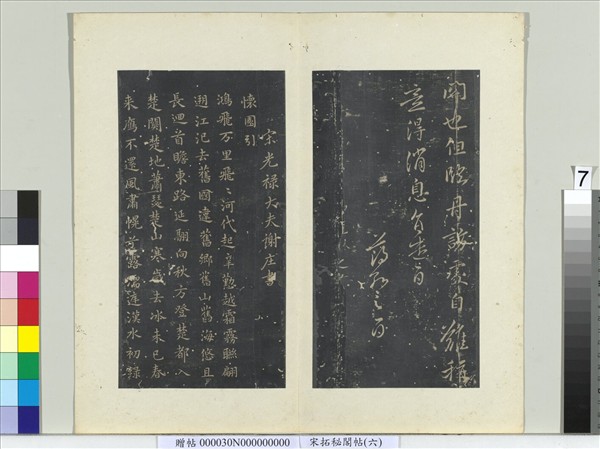 也但臨
得消息
宋光祿大夫謝莊書
懷園引
鴻飛万里飛〻河代起辛勤越霜霧聯翩
遡江汜去舊國違舊鄉舊山舊海悠且
長迴首瞻東路延翮向秋方登楚都入
楚關楚地蕭瑟楚山寒歲去冰未已春
來鴈不還風肅幌兮露濡庭漢水初綠
7
贈帖 000030N000000000 宋拓秘閣帖(六)